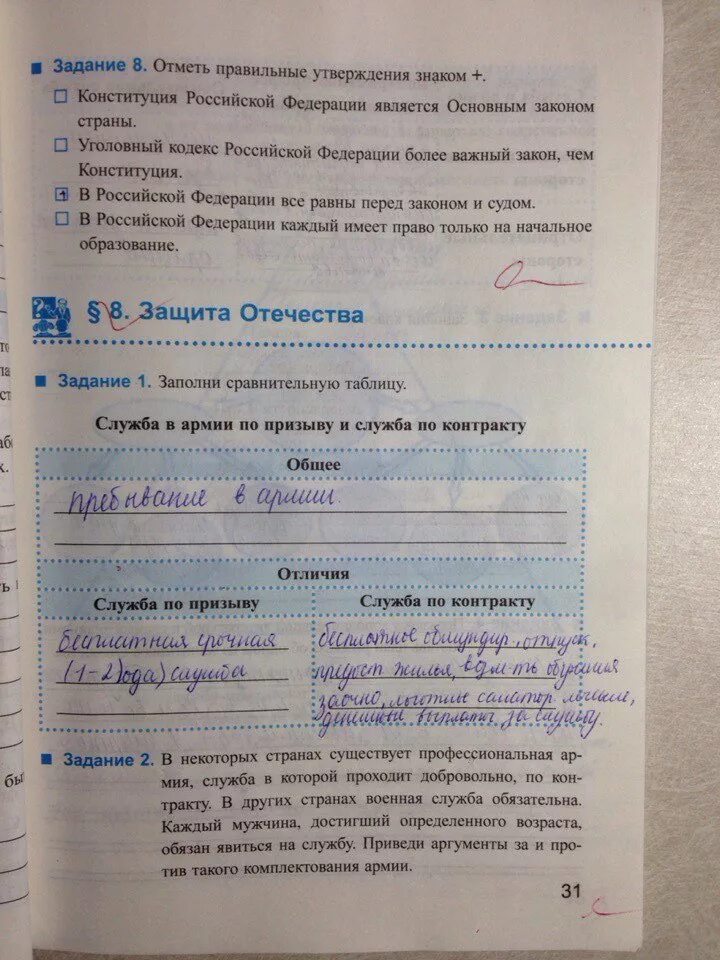 Задание 8. Отметь правильные утверждения знаком +.
Конституция Российской Федерации является Основным законом
страны.
Уголовный кодекс Российской Федерации более важный закон, чем
Конституция.
В Российской Федерации все равны перед законом и судом.
В Российской Федерации каждый имеет право только на начальное
образование.
§ 8. Защита Отечества
Задание 1. Заполни сравнительную таблицу.
Служба в армии по призыву и служба по контракту
Общее
пребывание в армии.
Отличия
Служба по призыву
Служба по контракту
бесплатная срочная
(1-2)года) служба
бесплатное обмундир, отпуск,
предост жилья,
заочно, льготное санатор лечение,
выплаты за службу.
Задание 2. В некоторых странах существует профессиональная ар-
мия, служба в которой проходит добровольно, по кон-
тракту. В других странах военная служба обязательна.
Каждый мужчина, достигший определенного возраста,
обязан явиться на службу. Приведи аргументы за и про-
тив такого комплектования армии.
31